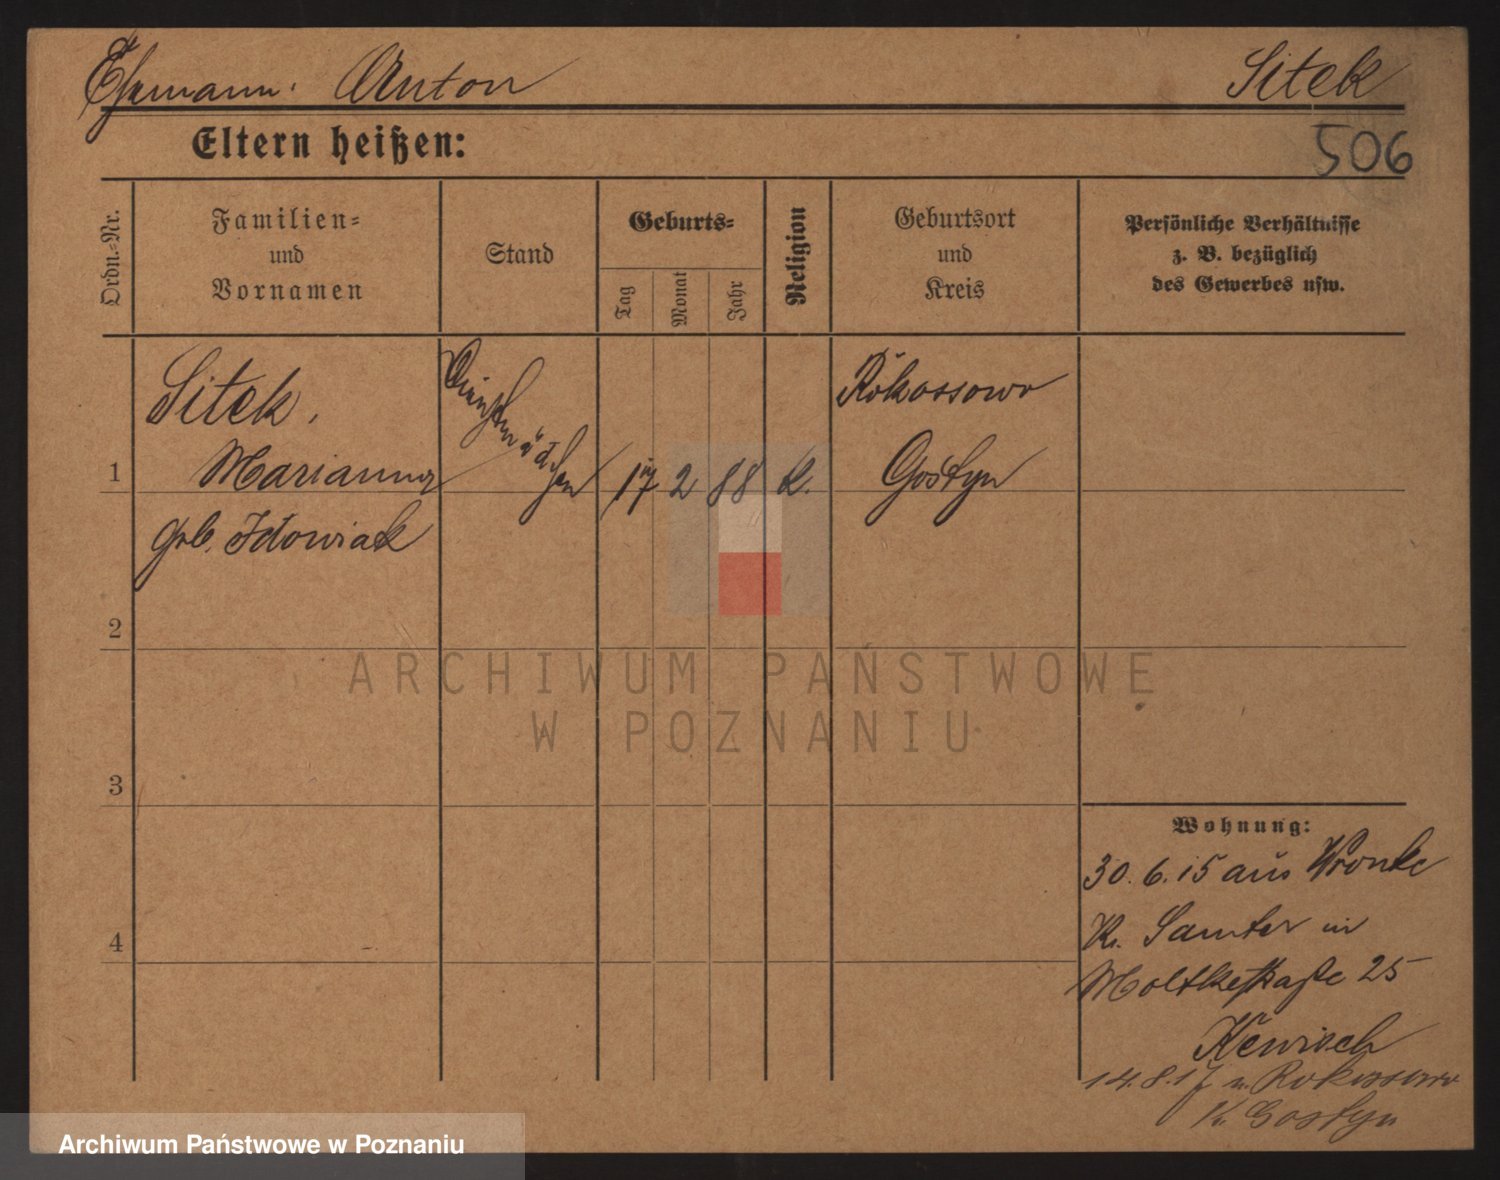 Ehemann. Anton Sitek
Eltern heißen:
506
Ordn.-Nr.
Familien-
und
Vornamen
Stand
Geburts-
Tag
Monat
Jahr
Religion
Geburtsort
und
Kreis
Persönliche Verhältnisse
z. B. bezüglich
des Gewerbes usw.
Sitek,
Marianna
geb. Idowiak
Dienstmädchen
1
17 2 88 k.
Rokossowo
Gostyn
2
3
4
Wohnung:
30. 6. 15 aus Wronke
Kr. Samter in
Moltkestraße 25
14. 8. 17 n. Rokossowo
Kr. Gostyn
ARCHIWUM PAŃSTWOWE
W POZNANIU
Archiwum Państwowe w Poznaniu